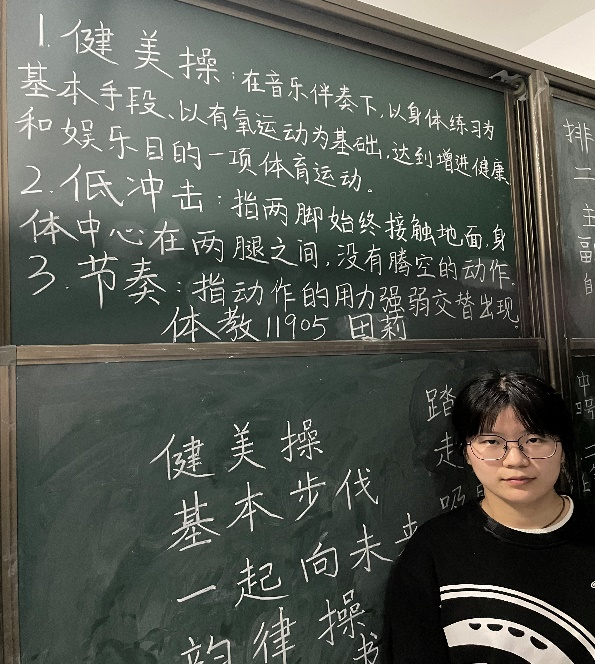 1.健美操:在音乐伴奏下,以身体练习为
基本手段、以有氧运动为基础,达到增进健康
和娱乐目的一项体育运动。
2.低冲击:指两脚始终接触地面,身
体中心在两腿之间,没有腾空的动作.
3.节奏:指动作的用力强弱交替出现.
体教11905 田莉
健美操
基本步伐
一起向未来
韵律操
书
踏
走
吸
排
二
主
副
的
中